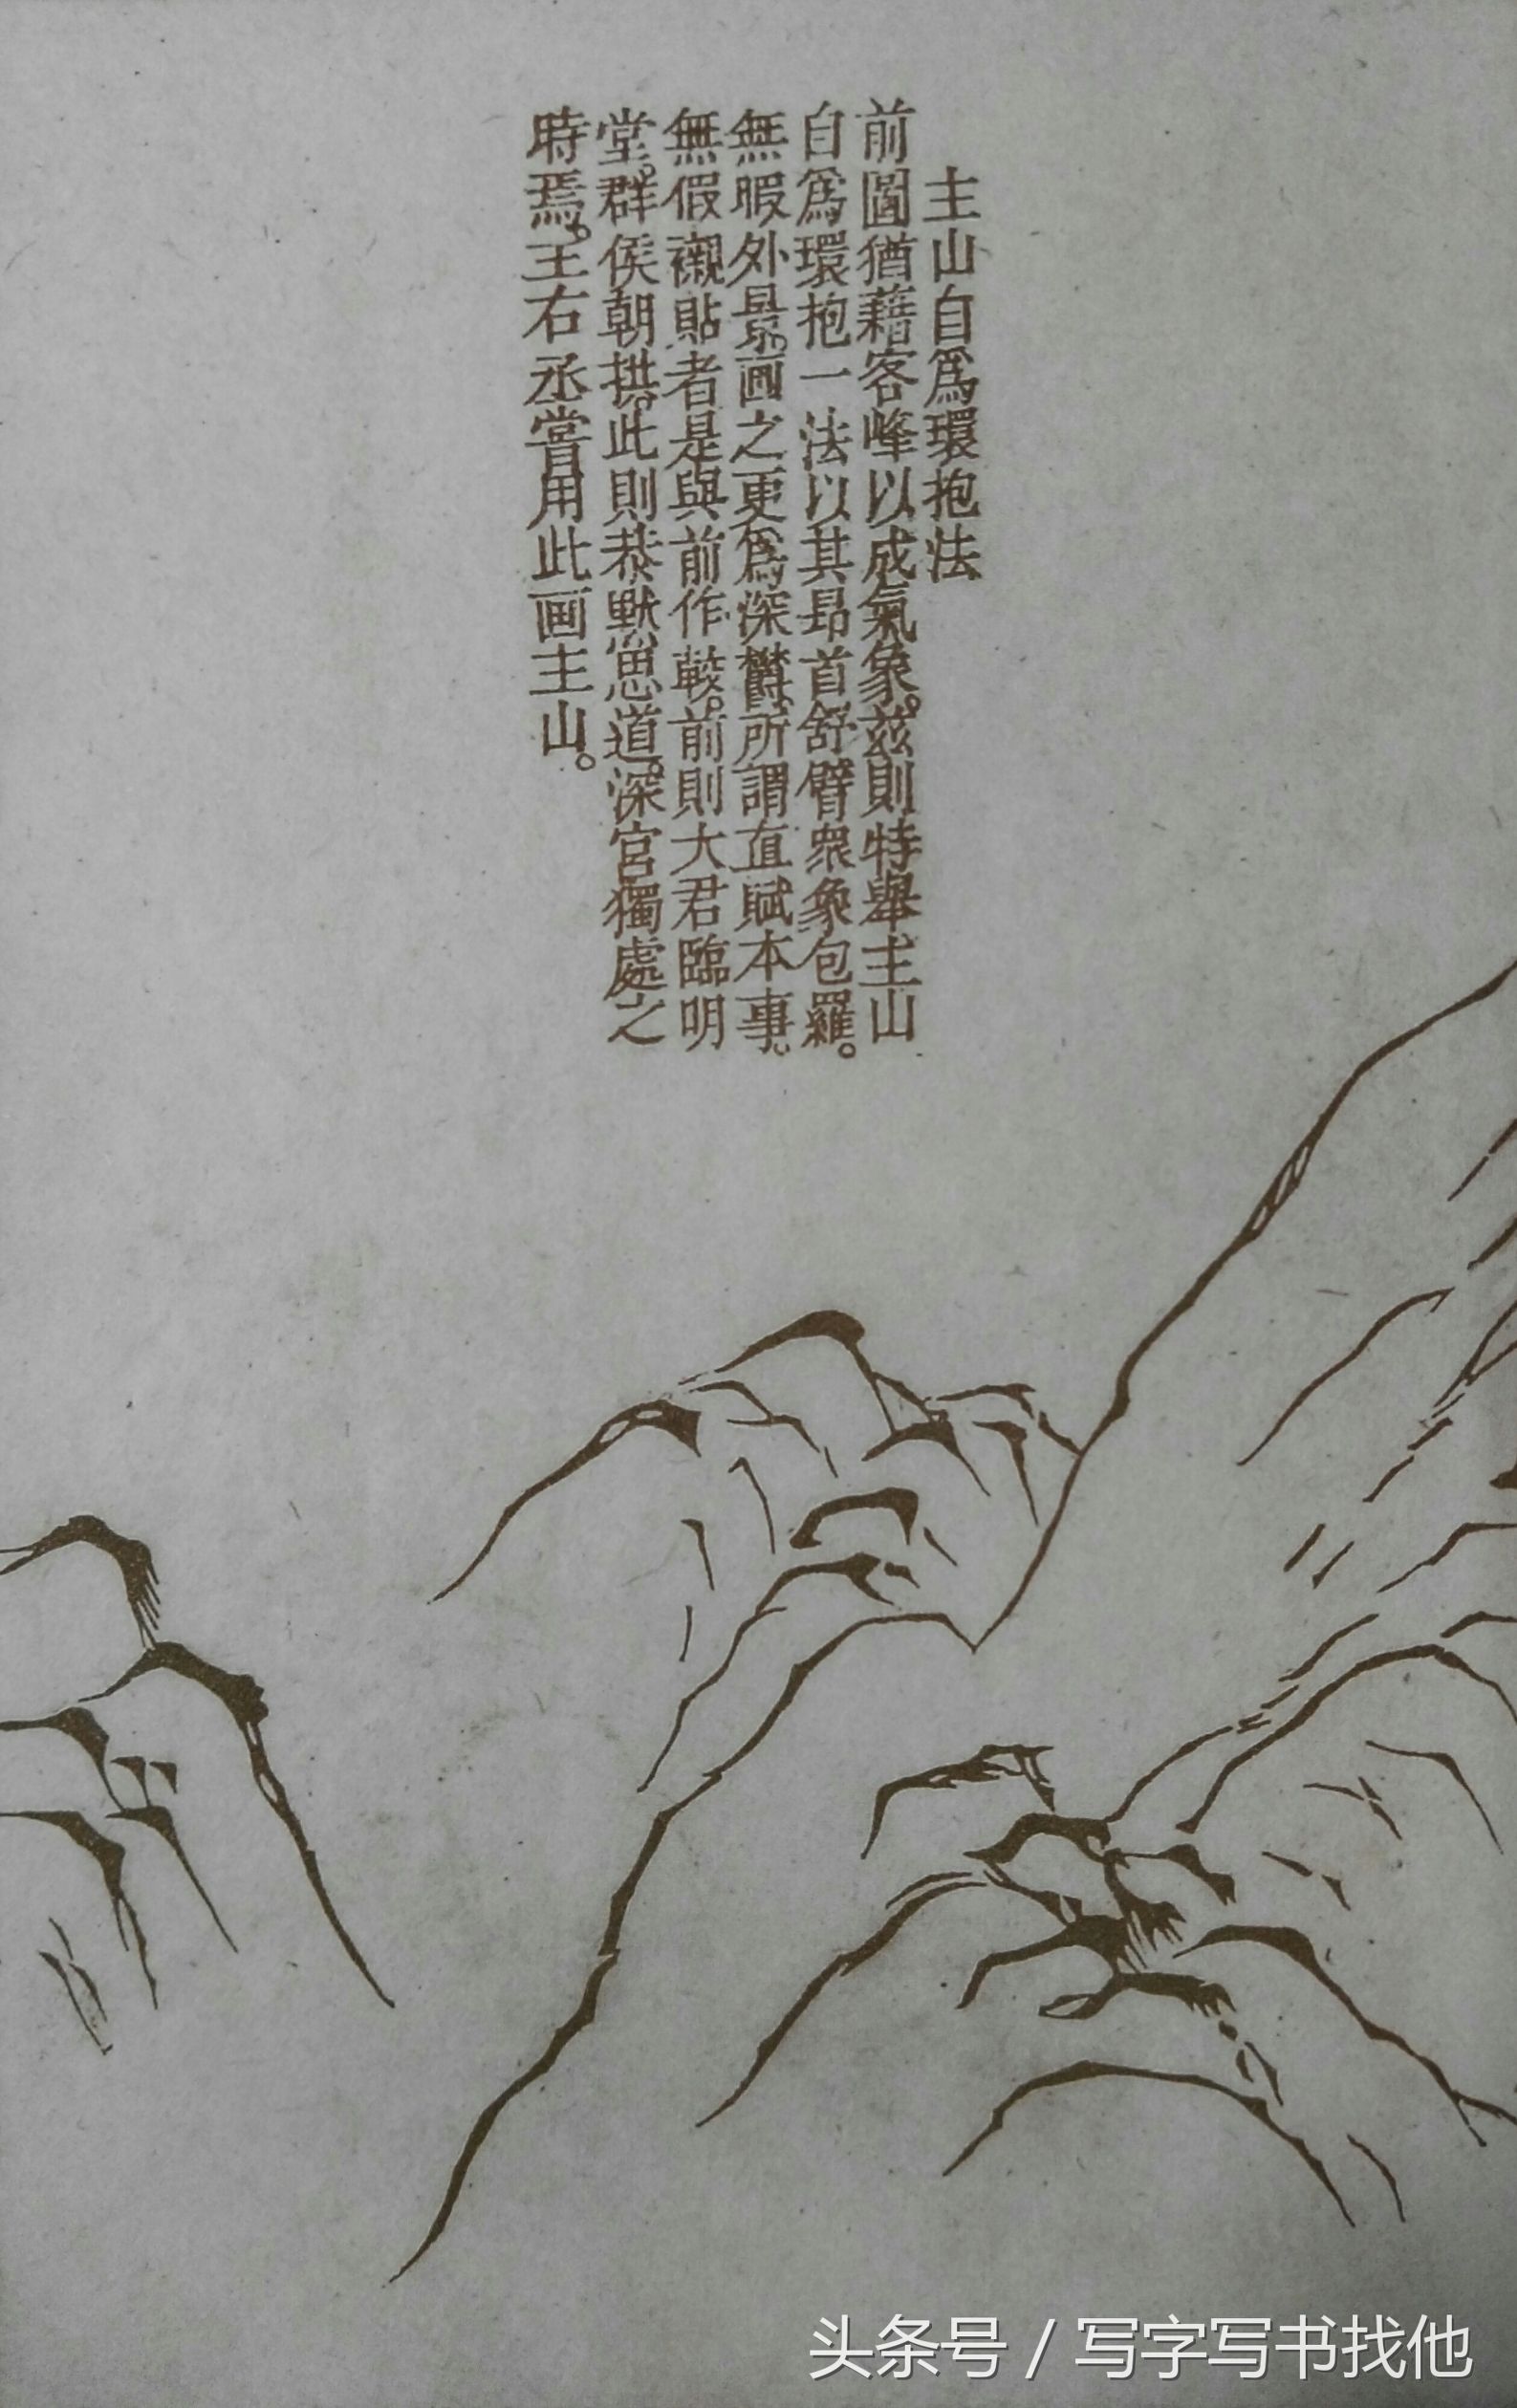 主山自爲環抱法
前圖猶藉客峰以成氣象。兹則特舉主山
自爲環抱一法以其昻首舒臂衆象包羅。
無暇外景。画之更爲深欝。所謂直賦本事
無假襯貼者是與前作較。前則大君臨明
堂。群侯朝拱。此則恭默思道。深宮獨處之
時焉。王右丞嘗用此画主山。
头条号 / 写字写书找他